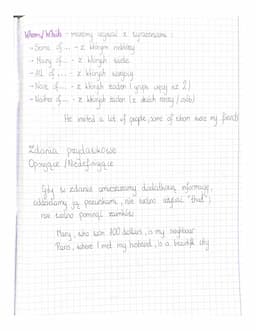 Whom/Which - możemy używać z wyrazeniami:
- Some of... - z których niektóry
- Many of... - z których wiele
- All of ... - z których wszyscy
- None of... - z których żaden (grupa więcej niż 2)
- Neither of... - z których żaden (z dwóch rzeczy/osób)
He invited a lot of people, some of whom were my friends
Zdania przydawkowe
Opisujące / Niedefiniujące
Gdy w zdaniu umieszczamy dodatkową informację,
oddzielamy ją przecinkami, nie wolno używać "that" i
nie wolno pominąć zaimków.
Mary, who won 100 dollars, is my neighbour
Paris, where I met my husband, is a beautiful city